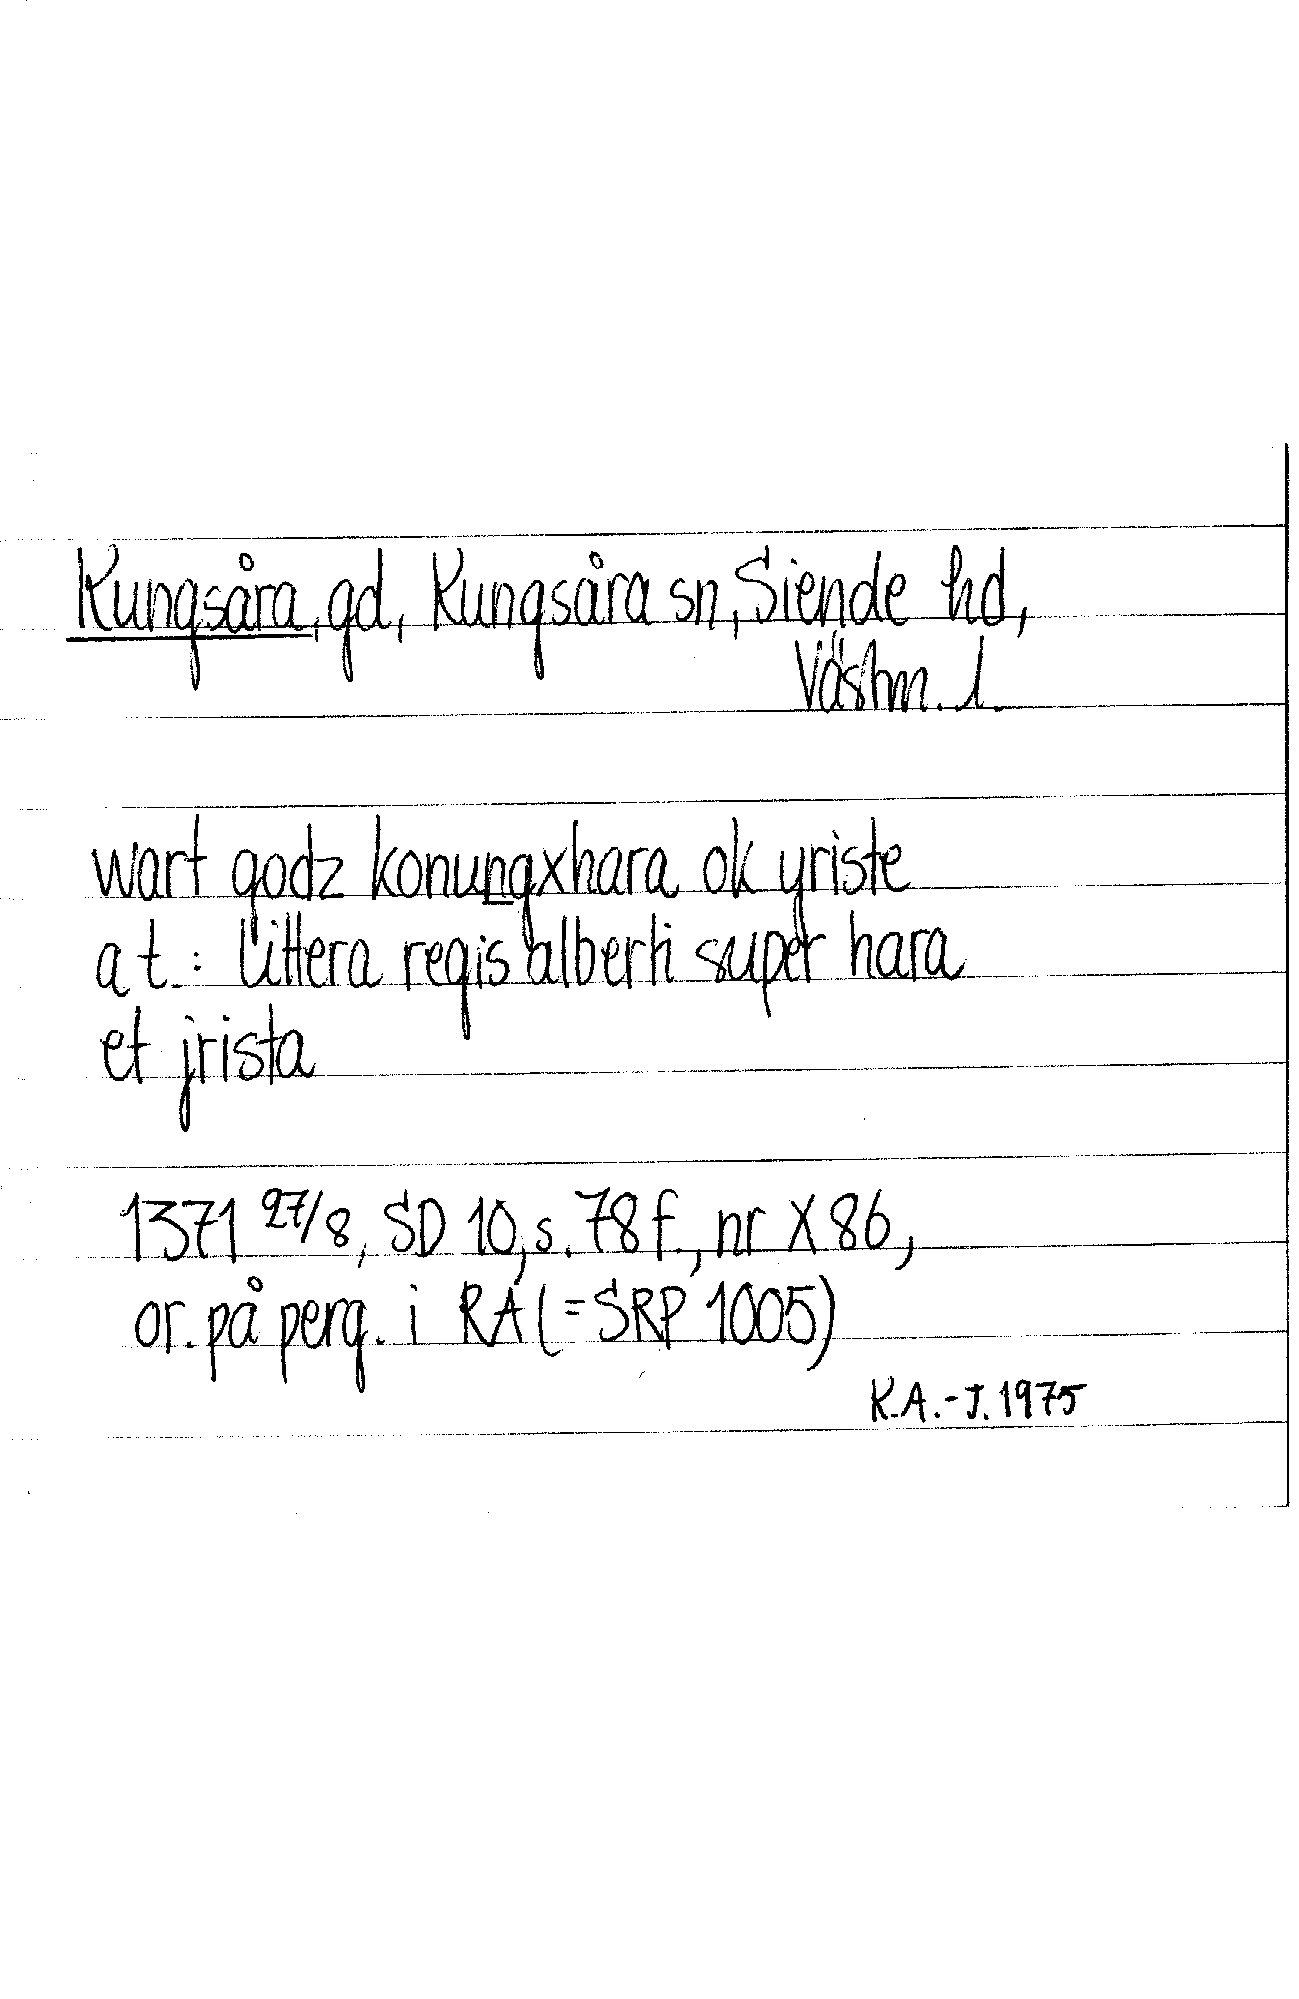 Kungsåra, gd, Kungsåra sn, Siende hd,
Västm. l.
wart godz konungxhara ok yriste
a t.: littera regis alberti super hara
et jrista
1371 27/8, SD 10, s. 78 f., nr X 86,
or. på perg. i RA (=SRP 1005)
K.A.-J. 1975